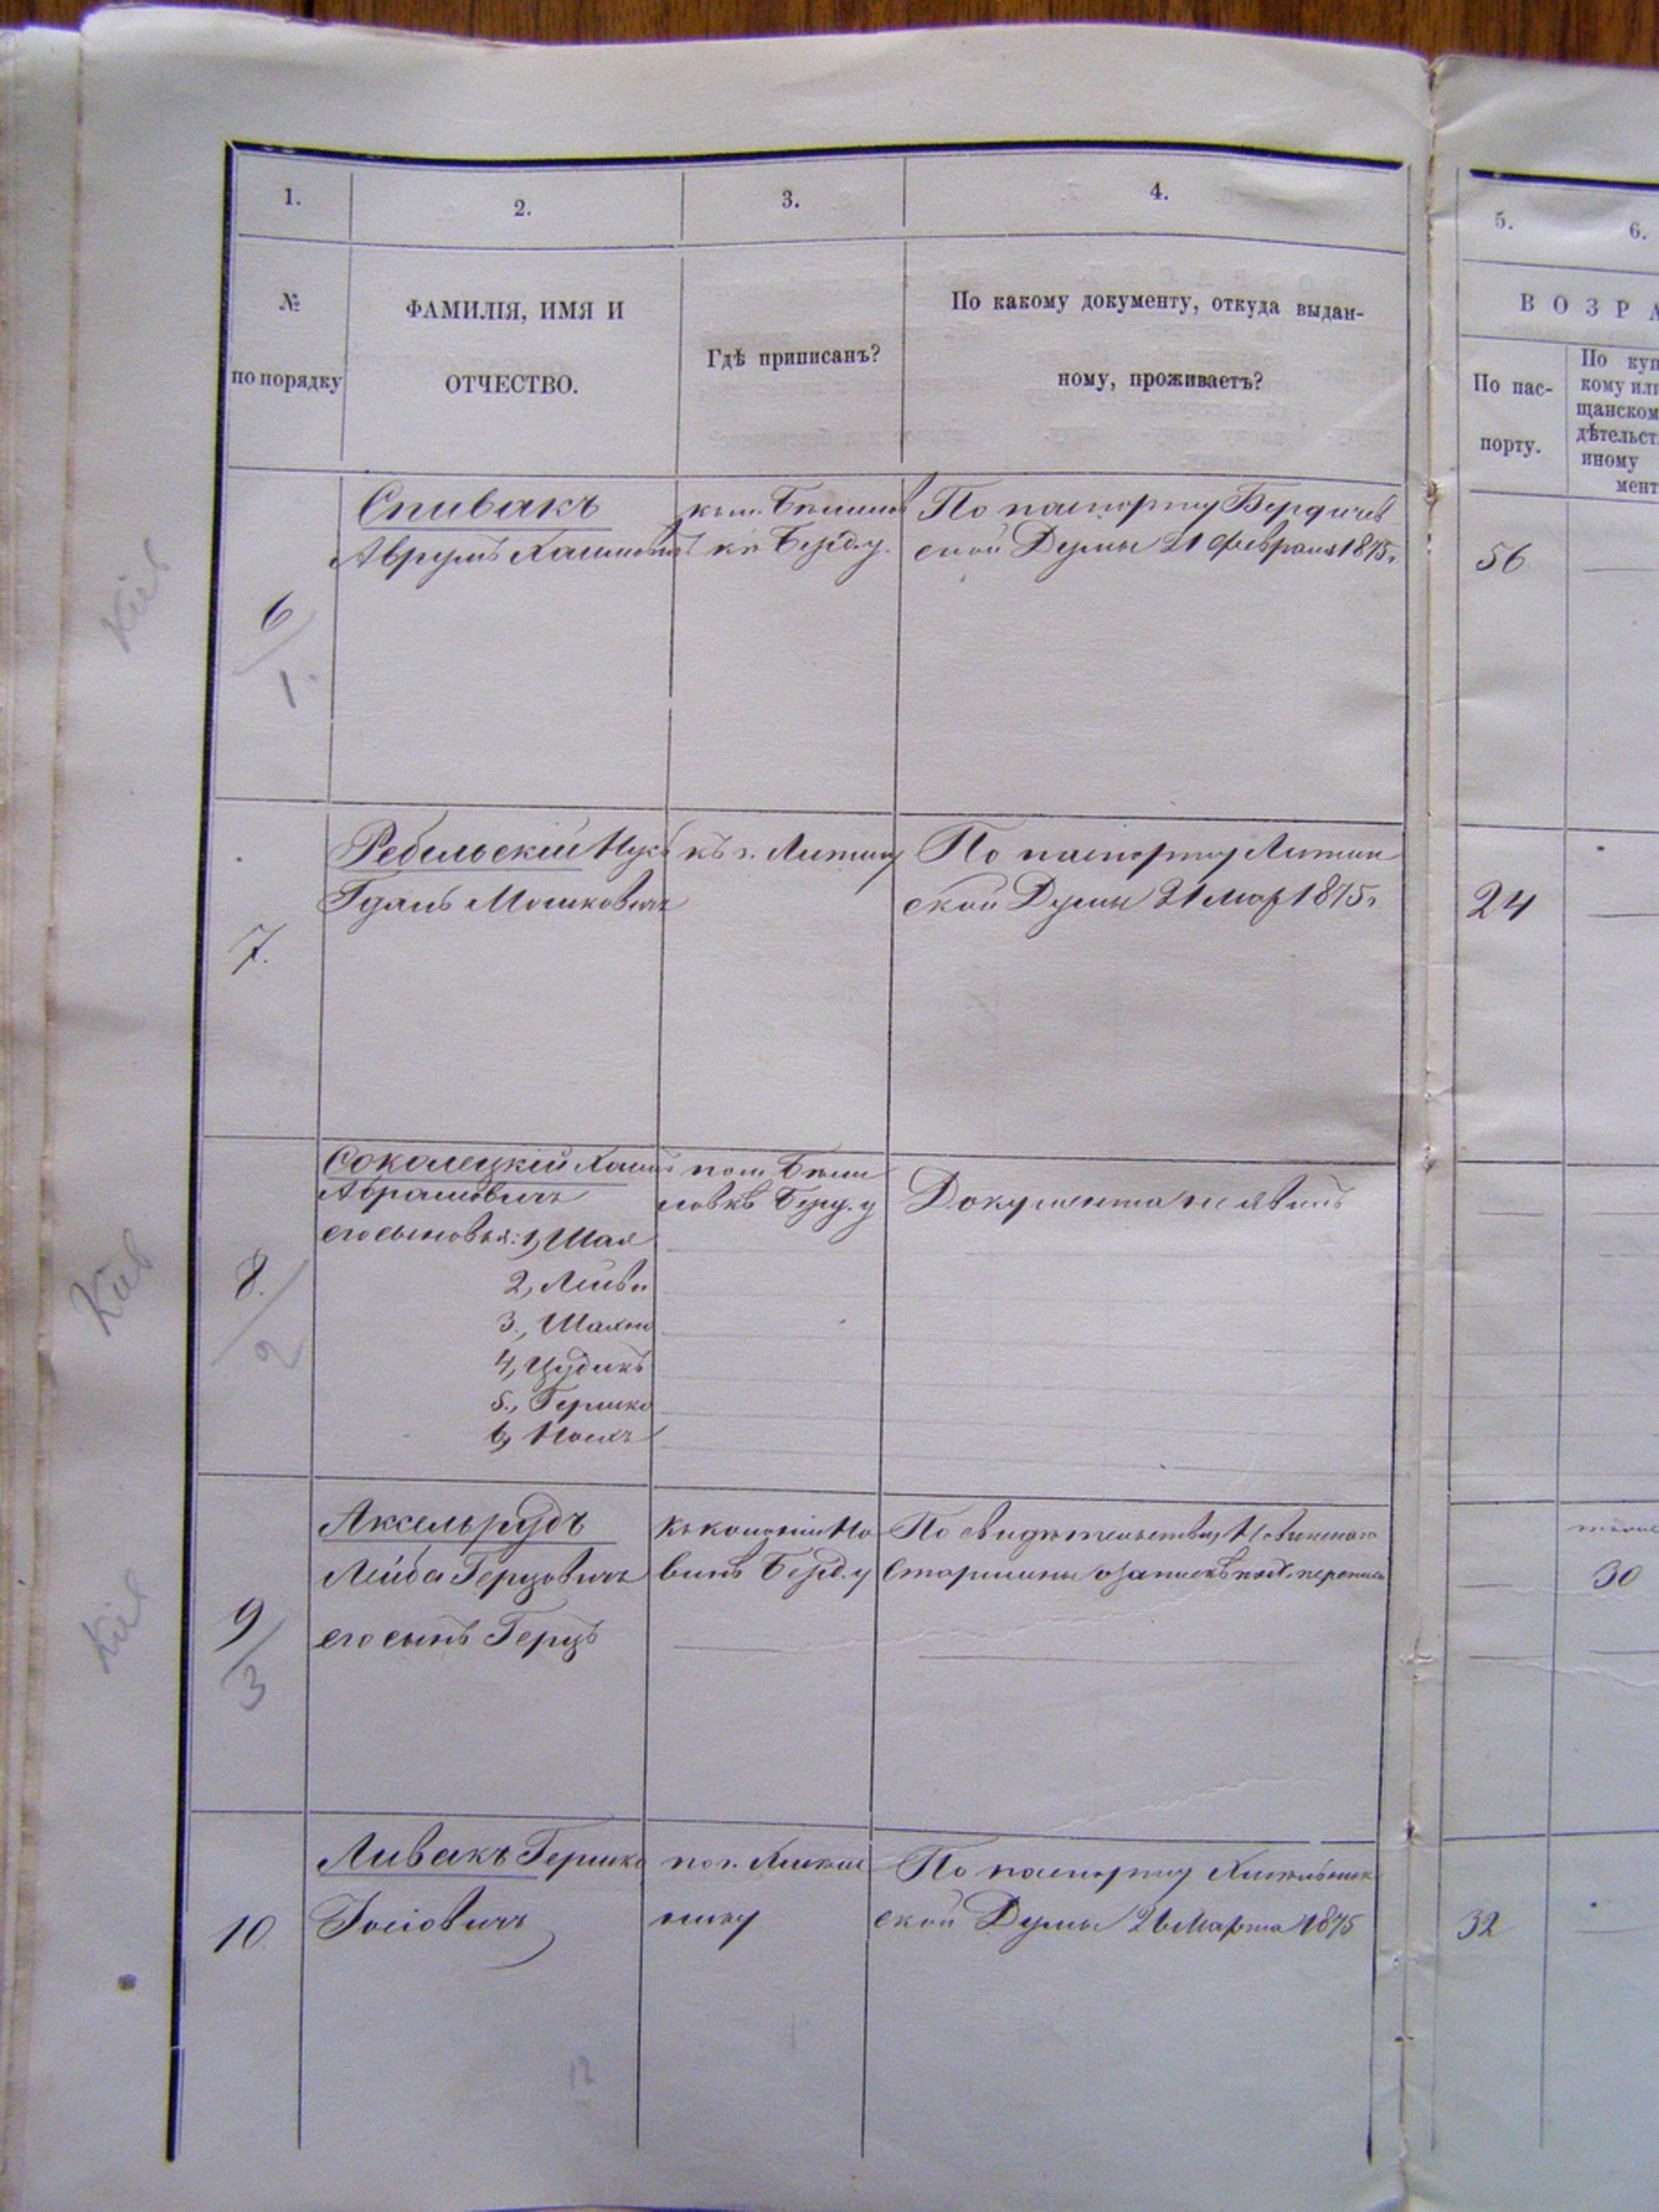 1.
2.
3.
4.
5.
6.
№
по порядку
ФАМИЛІЯ, ИМЯ И
ОТЧЕСТВО.
Гдѣ приписанъ?
По какому документу, откуда выдан-
ному, проживаетъ?
ВОЗРА
По пас-
порту.
По куп
кому или
щанском
дѣтельст
иному
мент
6/1.
Спивакъ
Аврумъ Хаимовичъ
къ Берд. у.
По паспорту Бердичев
ской Думы 21 февраля 1875 г.
56
7.
Ребельскій
Гдаль Мошковичъ
къ г. Литину
По паспорту Литин
ской Думы 21 мар 1875 г.
24
8./2
Соколецкій Хаимъ
Абрамовичъ
его сыновья: 1, Шая
2, Лейви
3., Шахно
4, Цудикъ
5., Гершко
6,
Берд. у
Документа не явилъ
9/3
Аксельрудъ
Лейба Герцовичъ
его сынъ Герцъ
Къ колоніи Но
винѣ Берд. у
По свидѣтельству Новинскаго
Старшины
30
10.
Ливакъ Гершко
Іосіовичъ
По паспорту Хмѣльник
ской Думы 26 Марта 1875
32
Кіев
Кіев
Кіев
12